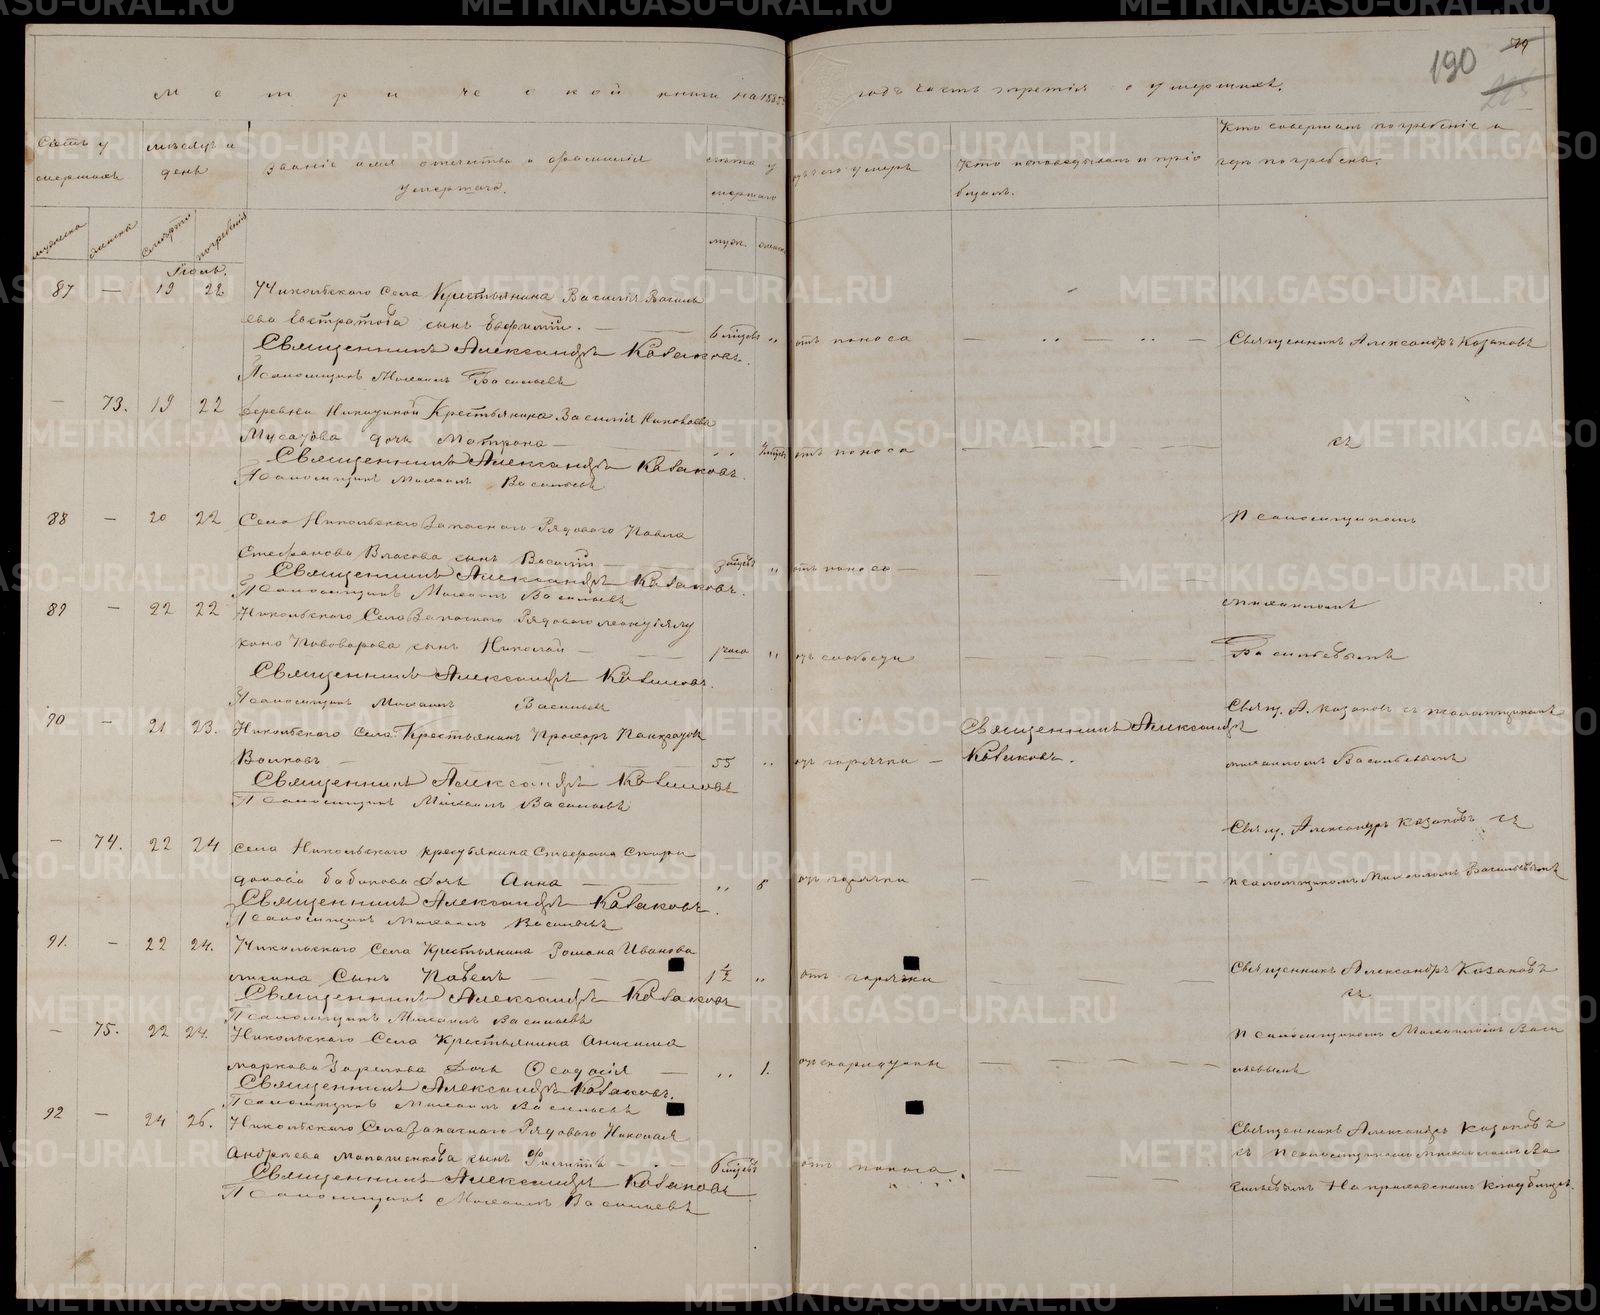 190
79
Метрической книги на 1885
годъ часть третія о умершихъ.
Счетъ умершихъ
Мѣсяцъ и день
Званіе имя отчество и фамилія умершаго.
лѣта умершаго
отъ чего умеръ
Кто исповѣдывалъ и пріобщалъ.
Кто совершалъ погребеніе и гдѣ погребены.
мужска
женска
смерти
погребенія
муж.
женск.
Іюль.
87 — 19 22 Никольскаго Села Крестьянина Василія Василь
ева Евстратова сынъ Евфимій. — 6 мцевъ „ отъ поноса — Священникъ Александръ Казаковъ
Священникъ Александръ Казаковъ.
Псаломщикъ Михаилъ Васильевъ
— 73. 19 22 деревни Никитиной Крестьянина Василія
дочь Матрона — отъ поноса — съ
Священникъ Александръ Казаковъ.
Псаломщикъ Михаилъ Васильевъ
88 — 20 22 Села Никольскаго Запаснаго Рядоваго Павла псаломщикомъ
Стефанова Власова сынъ Василій — „ отъ поноса —
Священникъ Александръ Казаковъ.
Псаломщикъ Михаилъ Васильевъ
89 — 22 22 Никольскаго Села Запаснаго Рядоваго Михаиломъ
Пивоварова сынъ Николай — „ отъ слабости Васильевымъ
Священникъ Александръ Казаковъ.
Псаломщикъ Михаилъ Васильевъ
90 — 21 23. Никольскаго Села Крестьянинъ Прохоръ Священникъ Александръ Свящ. А. Казаковъ съ псаломщикомъ
Волковъ — 55 „ отъ горячки — Казаковъ. Михаиломъ Васильевымъ
Священникъ Александръ Казаковъ
Псаломщикъ Михаилъ Васильевъ
— 74. 22 24 села Никольскаго крестьянина Стефана Спири Свящ. Александръ Казаковъ съ
донова Бабинова дочь Анна — „ 8 отъ горячки — псаломщикомъ Михаиломъ Васильевымъ
Священникъ Александръ Казаковъ.
Псаломщикъ Михаилъ Васильевъ
91. — 22 24. Никольскаго Села Крестьянина Романа Иванова Священникъ Александръ Казаковъ
Сынъ Павелъ — 1½ „ отъ горячки — съ
Священникъ Александръ Казаковъ
Псаломщикъ Михаилъ Васильевъ
— 75. 22 24. Никольскаго Села Крестьянина Анисима псаломщикомъ Михаиломъ Васи
Маркова дочь Ѳеодосія — „ 1. отъ скарлатины — льевымъ
Священникъ Александръ Казаковъ.
Псаломщикъ Михаилъ Васильевъ
92 — 24 26. Никольскаго Села Запаснаго Рядоваго Николая Священникъ Александръ Казаковъ
Андреева сынъ Филиппъ — 6 мцевъ отъ поноса. — съ псаломщикомъ Михаиломъ Ва
Священникъ Александръ Казаковъ сильевымъ На приходскомъ кладбищѣ.
Псаломщикъ Михаилъ Васильевъ
METRIKI.GASO-URAL.RU